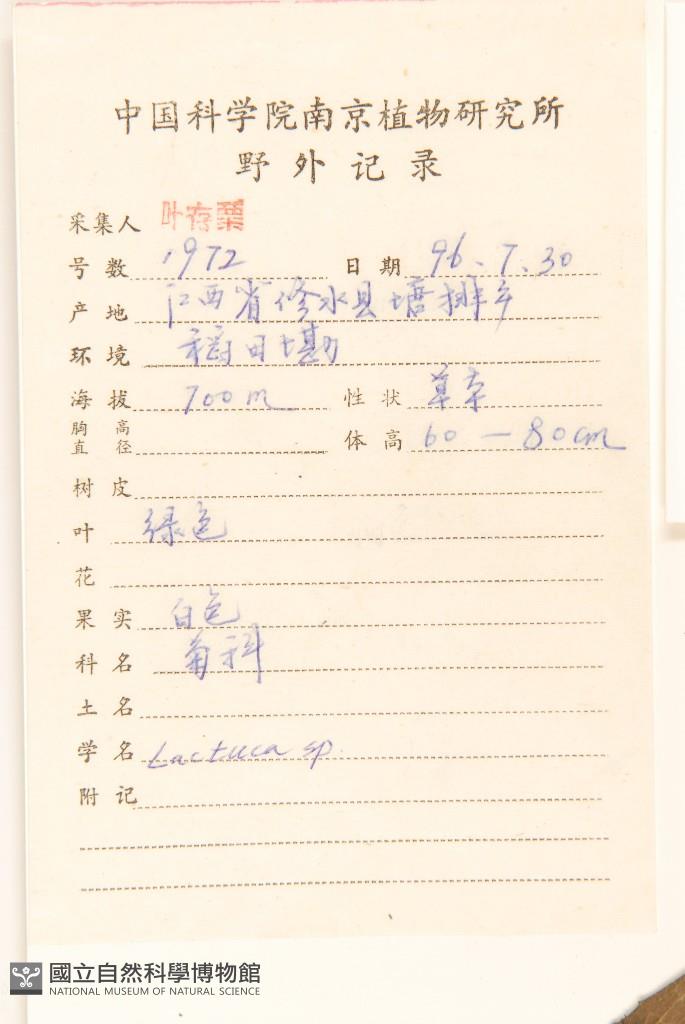 中国科学院南京植物研究所
野外记录
采集人 叶存粟
号数 1972 日期 96.7.30
产地 江西省修水县塘排乡
环境 稻田堪
海拔 700m 性状 草本
胸高直径 体高 60—80cm
树皮
叶 绿色
花
果实 白色
科名 菊科
土名
学名 Lactuca sp.
附记
國立自然科學博物館
NATIONAL MUSEUM OF NATURAL SCIENCE